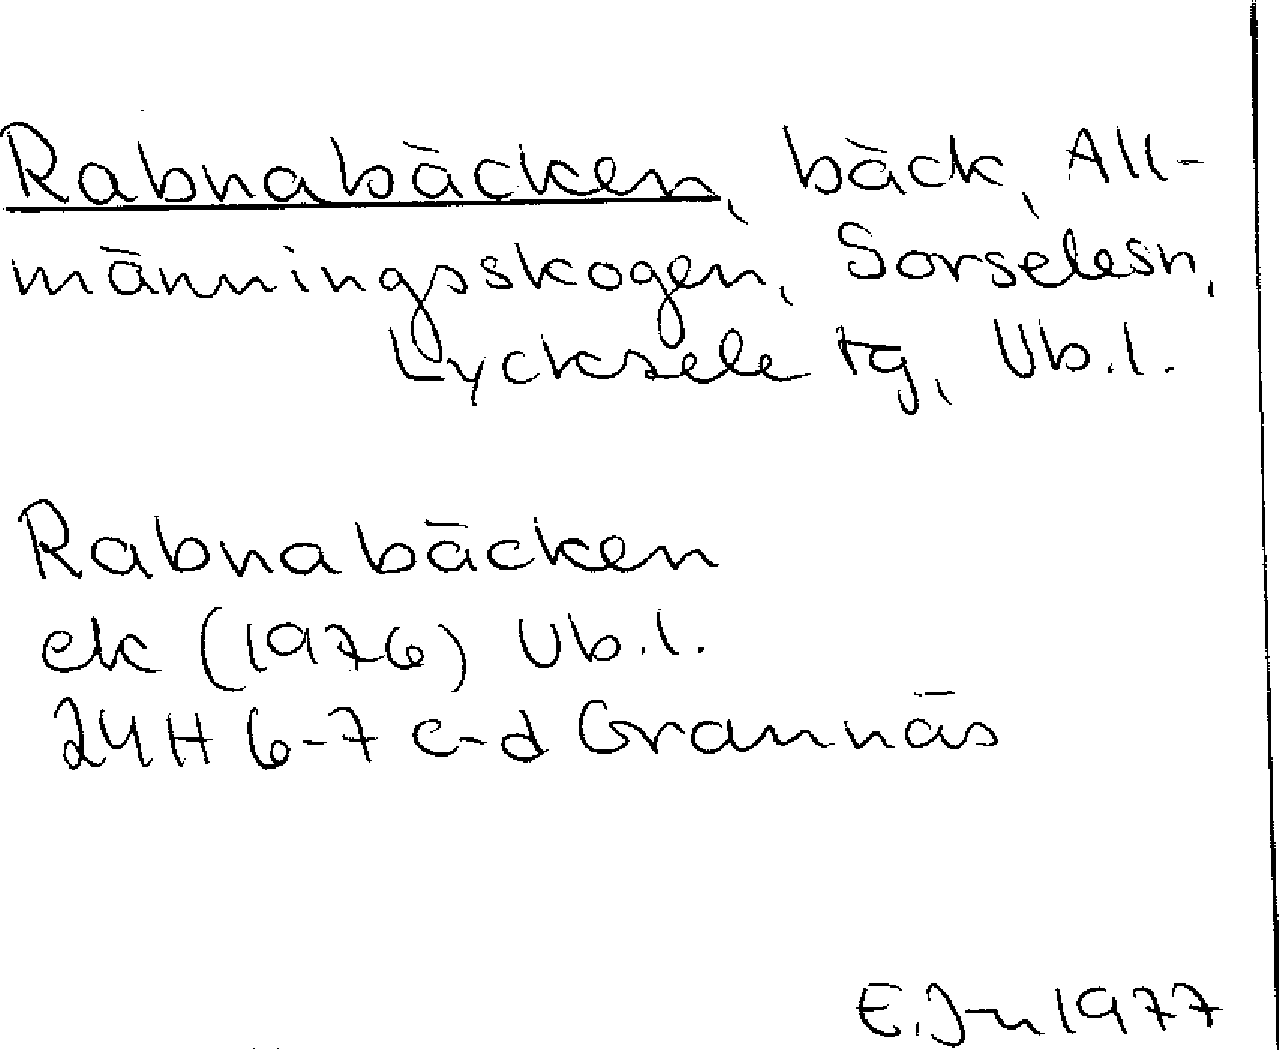 Rabnabäcken, bäck, All-
männingsskogen, Sorselesn,
Lycksele tg, Vb.l.
Rabnabäcken
ek (1976) Vb.l.
24H 6-7 c-d Grannäs
E. Jn 1977